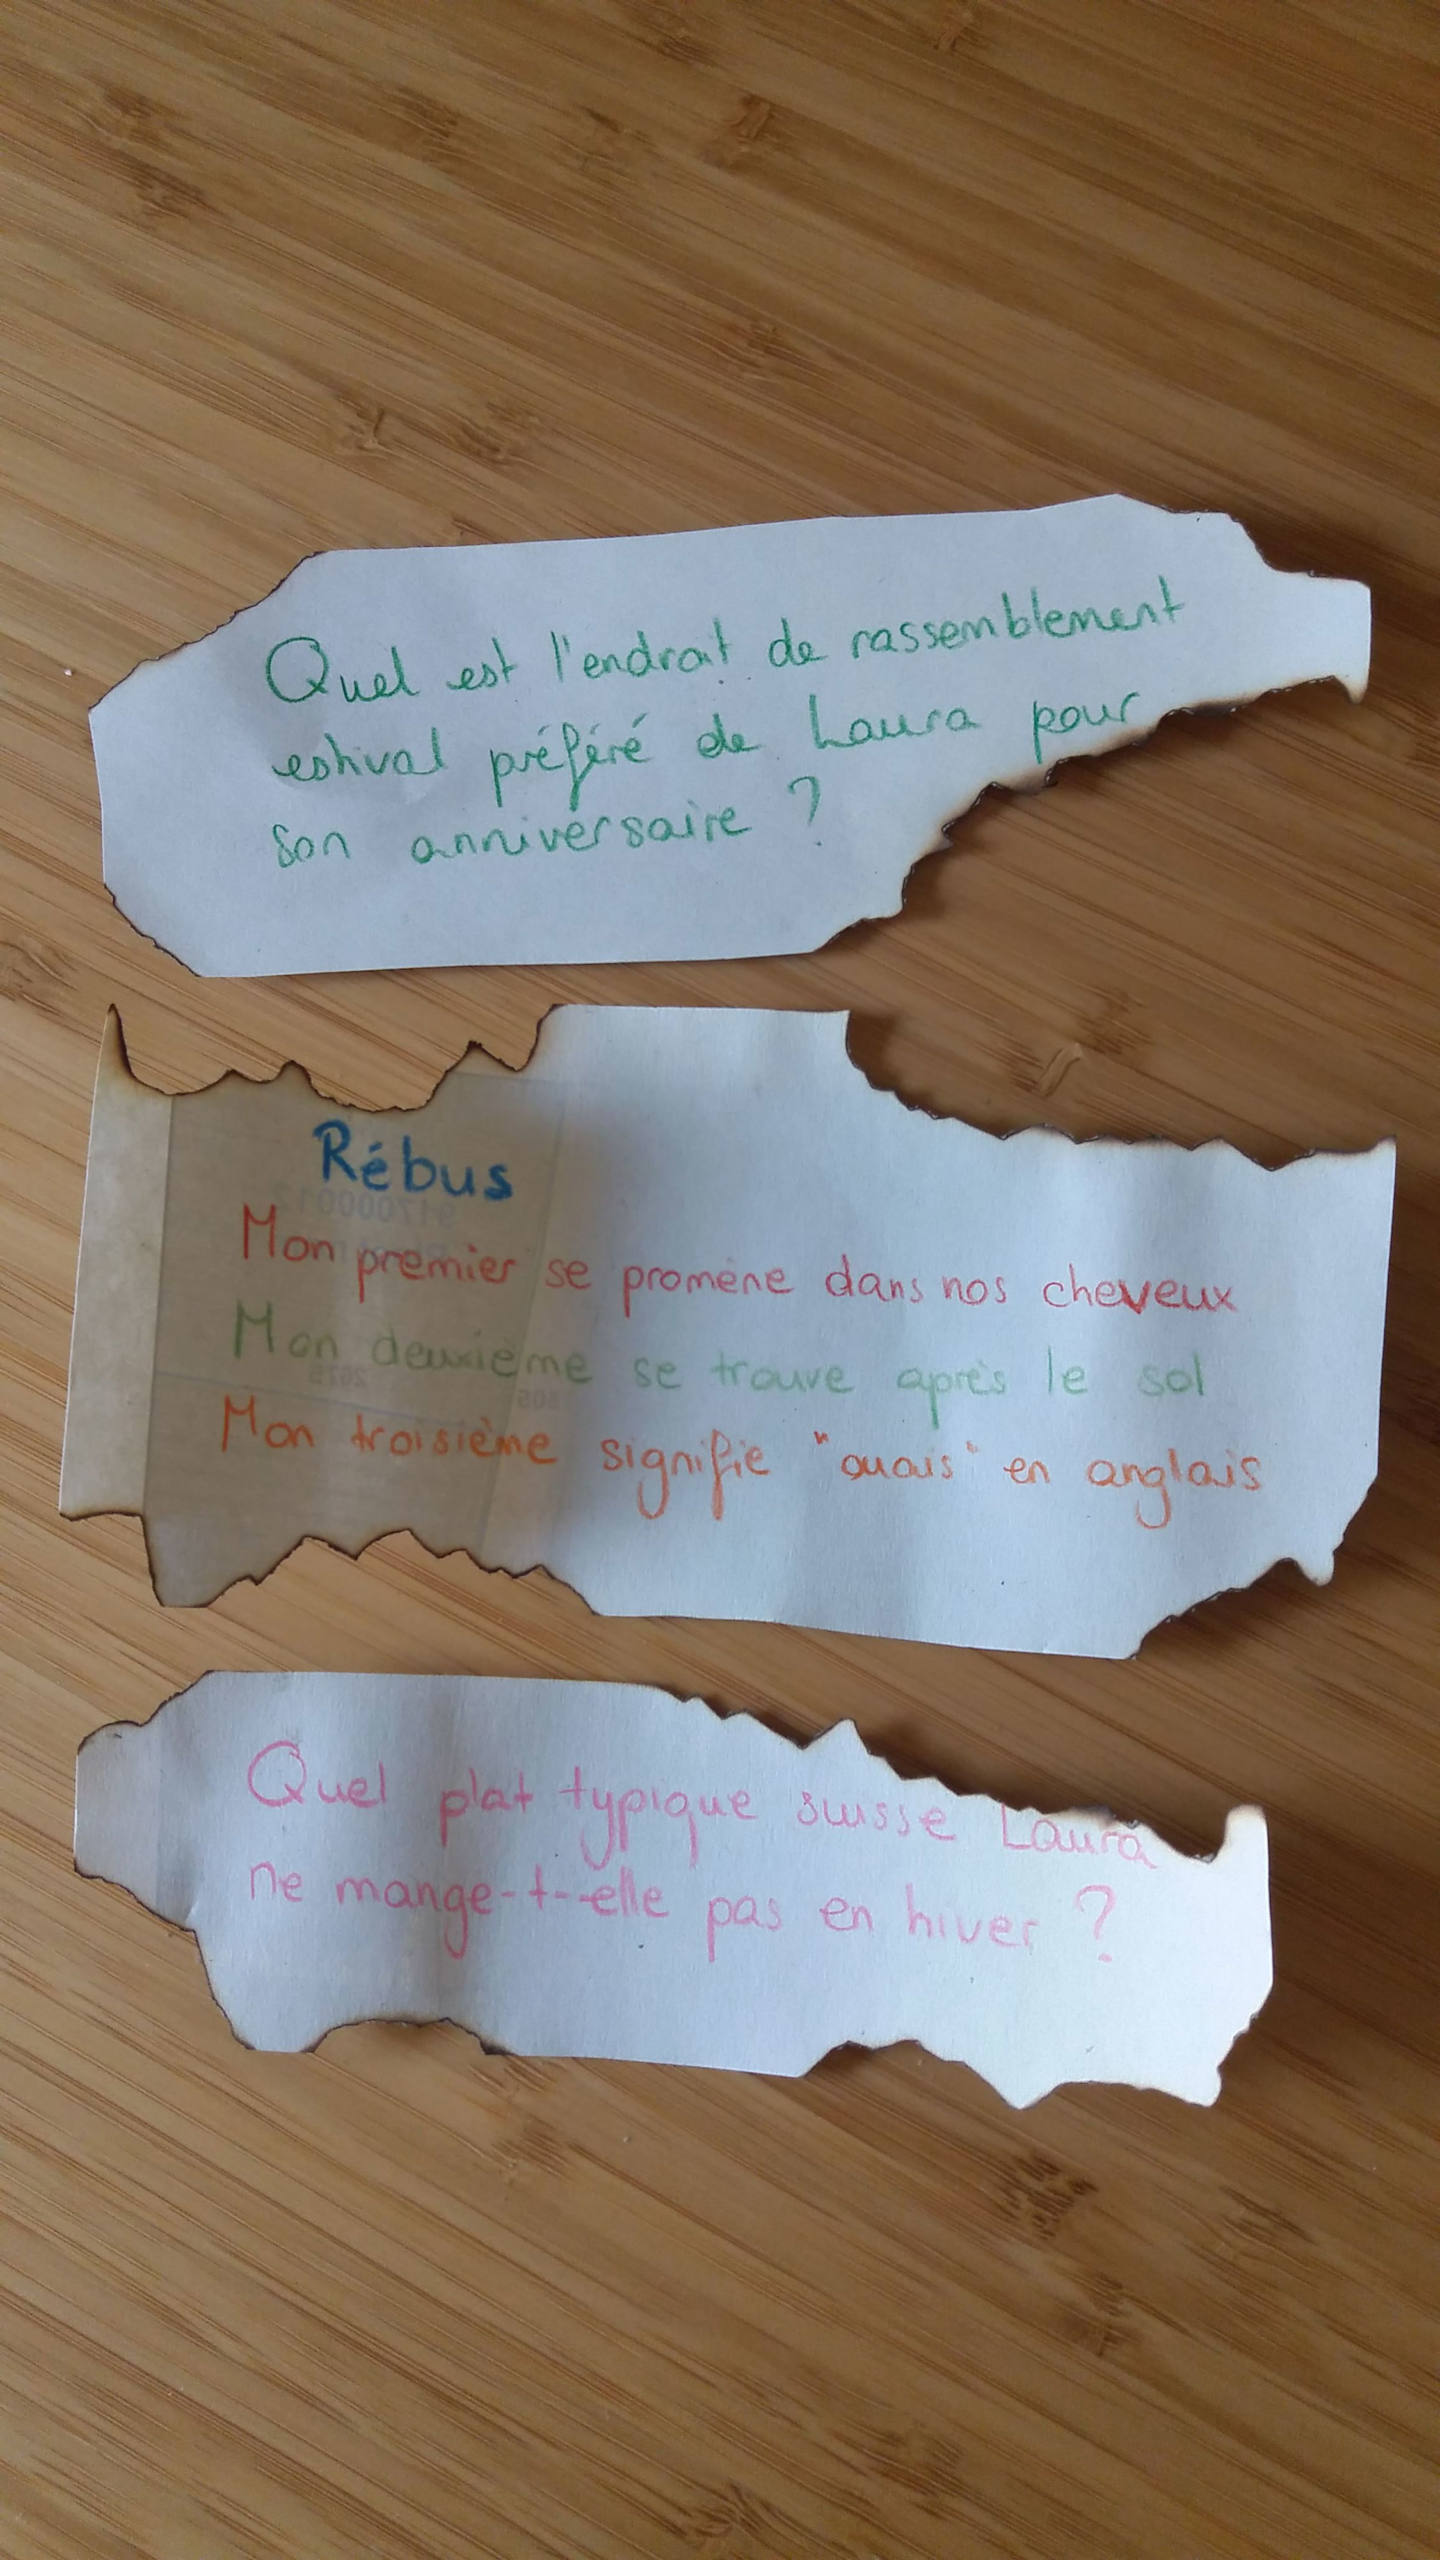 Quel est l'endroit de rassemblement
estival préféré de Laura pour
son anniversaire ?
Rébus
Mon premier se promène dans nos cheveux
Mon deuxième se trouve après le sol
Mon troisième signifie "ouais" en anglais
Quel plat typique suisse Laura
ne mange-t-elle pas en hiver ?